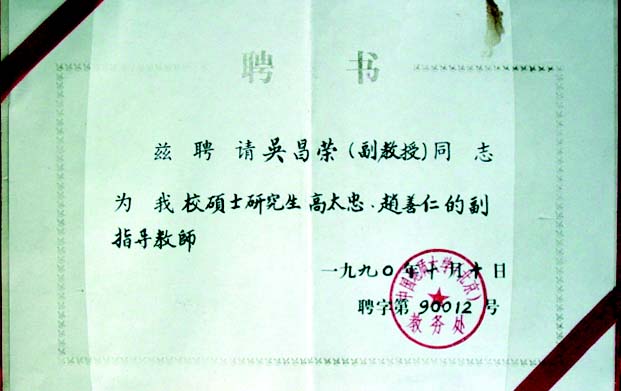 聘 书
兹 聘 请 吴昌荣(副教授)同 志
为 我 校碩士研究生 高太忠、趙善仁 的副
指导教師
一九九〇年十月十日
聘字第 90012 号
中国地质大学(北京)
教务处